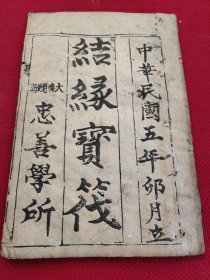 中華民國五年卯月立
結緣寶筏
忠善學所